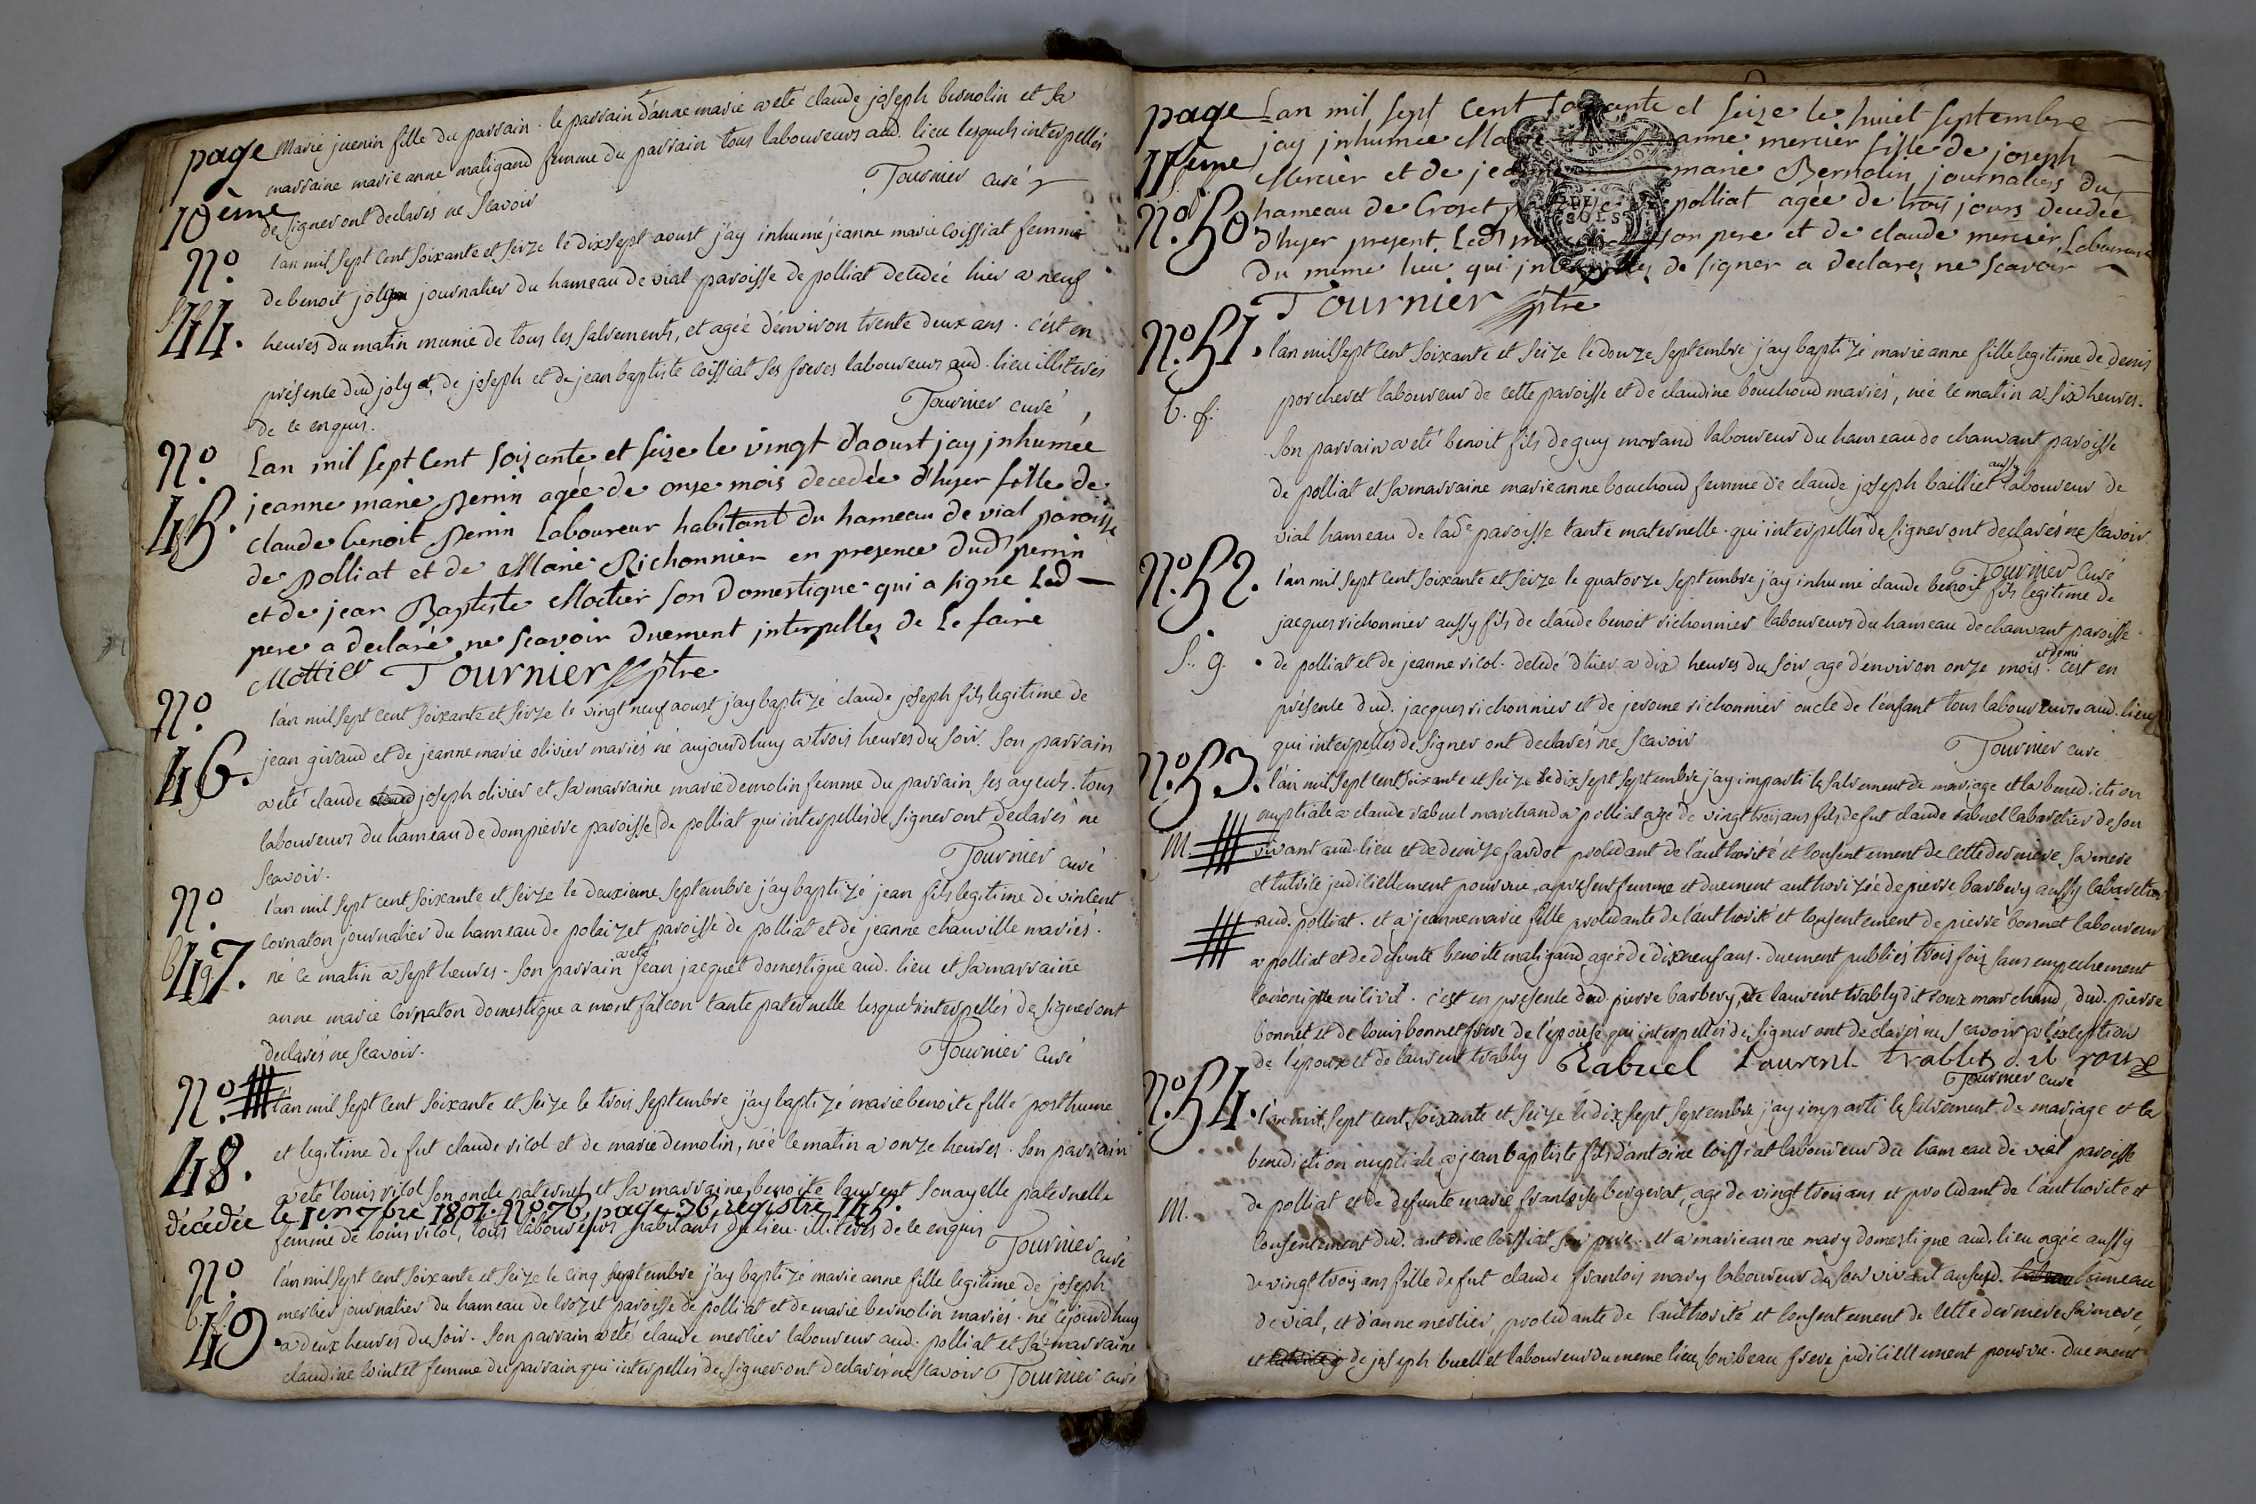 page
10ème
marie juenin fille du parrain. le parrain d'anne marie a eté claude joseph bernolin et sa
marraine marie anne maligand femme du parrain tous laboureurs aud. lieu lesquels interpellés
de signer ont declarés ne scavoir Tournier curé
n.o 44.
l'an mil sept cent soixante et seize le dix sept aoust j'ay inhumé jeanne marie coissiat femme
de benoit joly journalier du hameau de vial paroisse de polliat decedée hier a neuf
heures du matin munie de tous les sacrements, et agée d'environ trente deux ans. c'est en
présence dud joly et de joseph et de jean baptiste coissiat ses freres laboureurs aud. lieu illiteres
de ce enquis. Tournier curé
n.o 45.
Lan mil sept cent soixante et seize le vingt daoust jay inhumée
jeanne marie Perrin agée de onze mois decedée d'hyer fille de
claude benoit Perrin Laboureur habitant du hameau de vial paroisse
de Polliat et de Marie Richonnier en presence dud perrin
et de jean Baptiste Mottier son domestique qui a signe Led
pere a declaré ne scavoir duement interpellez de Le faire
Mottier Tournier ptre
n.o 46.
l'an mil sept cent soixante et seize le vingt neuf aoust j'ay baptizé claude joseph fils legitime de
jean giraud et de jeanne marie olivier mariés né aujourdhuy a trois heures du soir. Son parrain
a eté claude joseph olivier et sa marraine marie demolin femme du parrain ses ayeuls. tous
laboureurs du hameau de dompierre paroisse de polliat qui interpellés de signer ont declarés ne
scavoir. Tournier curé
n.o 47.
b g
l'an mil sept cent soixante et seize le deuxieme septembre j'ay baptizé jean fils legitime de vincent
cornaton journalier du hameau de poleizet paroisse de polliat et de jeanne chanville mariés.
né ce matin a sept heures. son parrain a eté jean jacquet domestique aud. lieu et sa marraine
anne marie cornaton domestique a montfalcon tante paternelle lesquels interpellés de signer ont
declarés ne scavoir. Tournier curé
n.o 48.
l'an mil sept cent soixante et seize le trois septembre j'ay baptizé marie benoite fille posthume
et legitime de fut claude vicol et de marie demolin, née ce matin a onze heures. Son parrain
a eté louis vicol son oncle paternel et sa marraine benoite laurent son ayelle paternelle
décédée le 1er 7bre 1807. N.o 76, page 36, registre 145.
femme de louis vicol, tous laboureurs habitants du lieu. illiteres de ce enquis Tournier curé
n.o 49
l'an mil sept cent soixante et seize le cinq septembre j'ay baptizé marie anne fille legitime de joseph
mercier journalier du hameau de crozet paroisse de polliat et de marie bernolin mariés. né cejourdhuy
a deux heures du soir. Son parrain a eté claude mercier laboureur aud. polliat et sa marraine
claudine cointet femme du parrain qui interpellés de signer ont declarés ne scavoir Tournier curé
page
11ème
n.o 50
Lan mil sept cent soixante et seize le huiet septembre
jay inhumée anne mercier fille de joseph
Mercier et de marie Bernolin journaliers du
hameau de Croset polliat agée de trois jours decedée
d'hyer present Led son pere et de claude mercier Laboureur
du meme lieu qui de signer a declarez ne scavoir
Tournier ptre
n.o 51.
b. f.
l'an mil sept cent soixante et seize le douze septembre j'ay baptizé marie anne fille legitime de denis
porcheret laboureur de cette paroisse et de claudine bouchoud mariés, née ce matin a six heures.
Son parrain a eté benoit fils de guy morand laboureur du hameau de chamant paroisse
de polliat et sa marraine marie anne bouchoud femme de claude joseph bailliet aussy laboureur de
vial hameau de lade paroisse tante maternelle. qui interpellés de signer ont declarés ne scavoir
Tournier curé
n.o 52.
S. g.
l'an mil sept cent soixante et seize le quatorze septembre j'ay inhumé claude benoit fils legitime de
jacques richonnier aussy fils de claude benoit richonnier laboureurs du hameau de chamant paroisse
de polliat et de jeanne vicol. decedé d'hier a dix heures du soir agé d'environ onze mois et demi. c'est en
présence dud. jacques richonnier et de jerome richonnier oncle de l'enfant tous laboureurs aud. lieu
qui interpellés de signer ont declarés ne scavoir Tournier curé
n.o 53.
m.
l'an mil sept cent soixante et seize le dix sept septembre j'ay imparti le sacrement de mariage et la benediction
nuptiale a claude rabuel marchand a polliat agé de vingt trois ans fils de fut claude rabuel cabaretier de son
vivant aud. lieu et de denize fardot procedant de l'authorité et consentement de cette derniere sa mere
et tutrice judiciellement pourvue, a present femme et duement authorizée de pierre barbery aussy cabaretier
aud. polliat. et a jeanne marie fille procedante de l'authorité et consentement de pierre bonnet laboureur
a polliat et de defunte benoite maligand agée de dix neuf ans. duement publiés trois fois sans empechement
canonique ni civil. c'est en presence dud. pierre barbery, de laurent trably dit roux marchand, dud. pierre
bonnet et de louis bonnet frere de l'epouse qui interpellés de signer ont declarés ne scavoir a l'exception
de l'epoux et de laurent trably Rabuel Laurent trablit dit roux
Tournier curé
n.o 54.
m.
l'an mil sept cent soixante et seize le dix sept septembre j'ay imparti le sacrement de mariage et la
benediction nuptiale a jean baptiste fils d'antoine coissiat laboureur du hameau de vial paroisse
de polliat et de defunte marie francoise bergerat, agé de vingt trois ans et procedant de l'authorité et
consentement dud. antoine coissiat son pere. et a marie anne mary domestique aud. lieu agée aussy
de vingt trois ans fille de fut claude francois mary laboureur de son vivant hameau
de vial, et d'anne mercier, procedante de l'authorité et consentement de cette derniere sa mere,
et de joseph buellet laboureur du meme lieu son beau frere judiciellement pourvu. duement